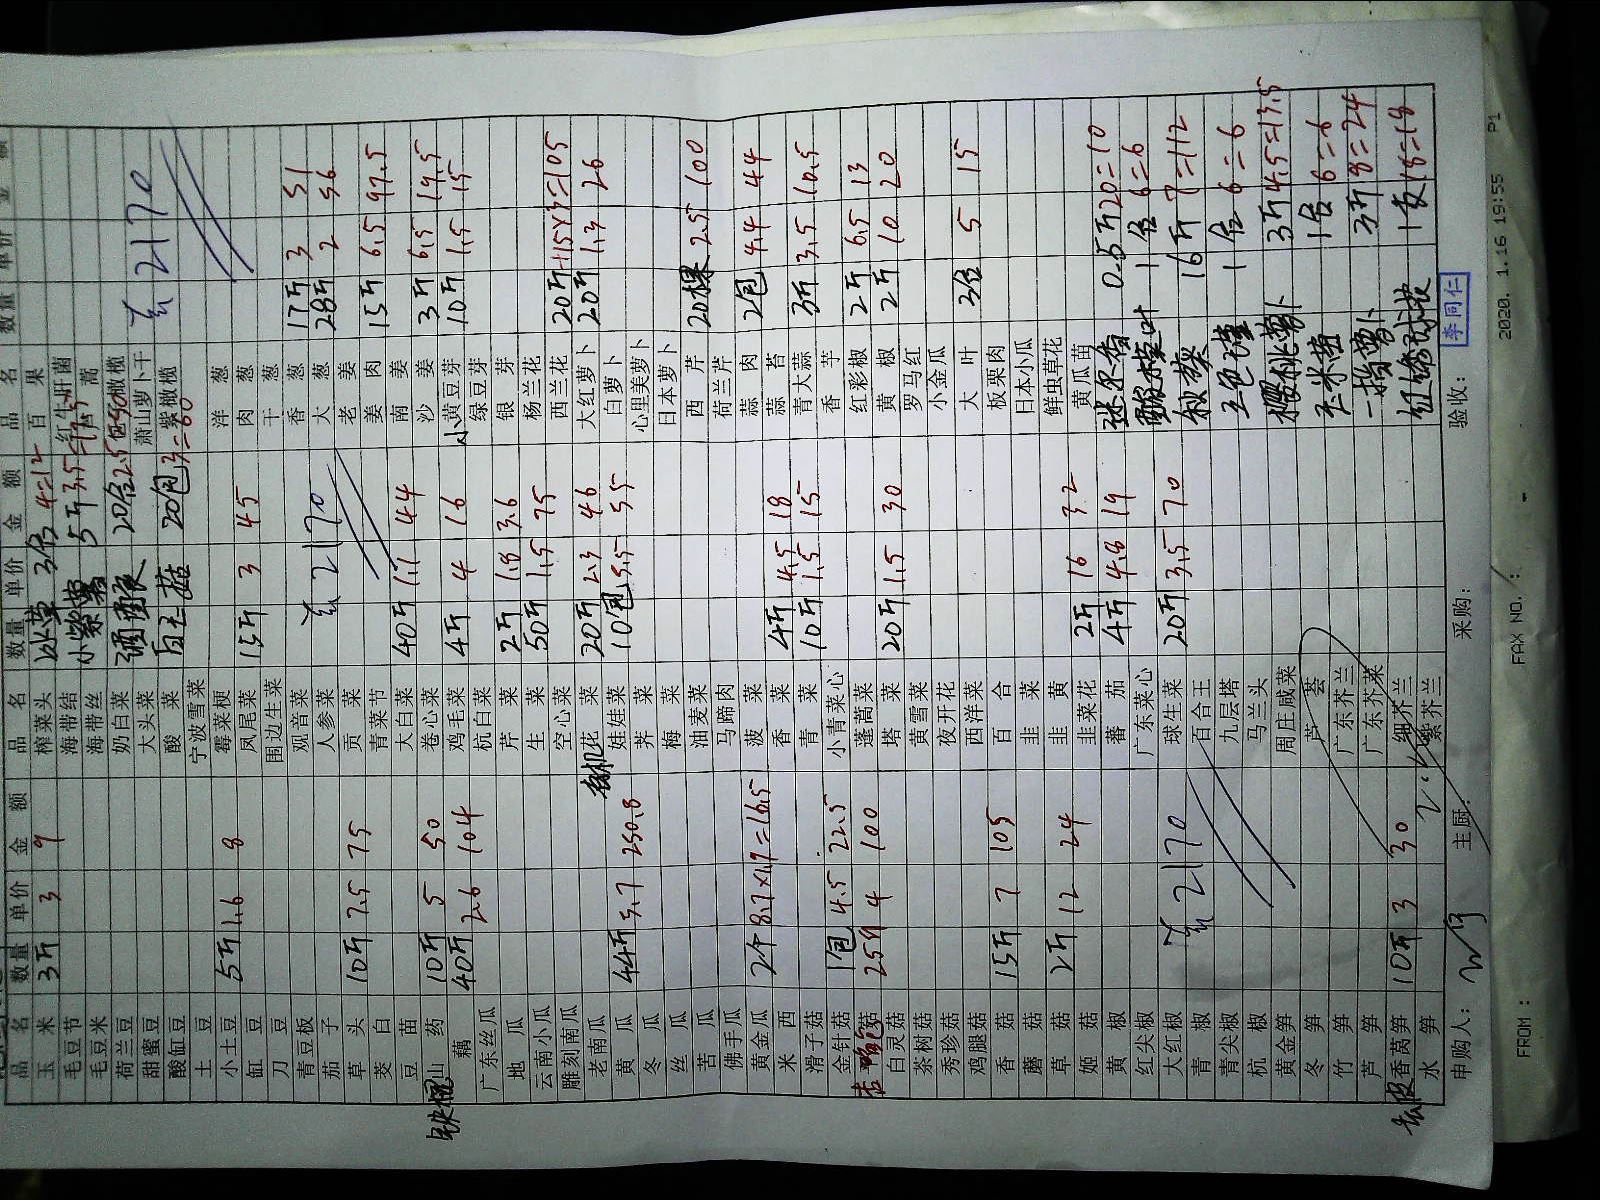 品名 数量 单价 金额 品名 数量 单价 金额 品名 数量 单价 金额
玉米 3斤 3 9 榨菜头 冰草 3包 4=12 百果
毛豆节 海带结 红牛肝菌
毛豆米 海带丝 小紫薯 5斤 3.5=17.5 蒿
荷兰豆 奶白菜 20合 2.5=50 橄榄
甜蜜豆 大头菜 萧山萝卜干
酸缸豆 酸菜 白玉菇 20包 3=60 紫橄榄 2170
土豆 宁波雪菜
小土豆 5斤 1.6 8 霉菜梗 洋葱
缸豆 凤尾菜 15斤 3 45 肉葱
刀豆 围边生菜 干葱
青豆板 观音菜 香葱 17斤 3 51
茄子 人参菜 2170 大葱 28斤 2 56
草头 10斤 7.5 75 贡菜 老姜
茭白 青菜节 姜肉 15斤 6.5 97.5
豆苗 大白菜 40斤 1.1 44 南姜
铁棍山药 10斤 5 50 卷心菜 沙姜 3斤 6.5 19.5
藕 40斤 2.6 104 鸡毛菜 4斤 4 16 小黄豆芽 10斤 1.5 15
广东丝瓜 杭白菜 绿豆芽
地瓜 芹菜 2斤 1.8 3.6 银芽
云南小瓜 生菜 50斤 1.5 75 杨兰花
雕刻南瓜 空心菜 西兰花 20斤 15×7=105
老南瓜 有机花菜 20斤 2.3 46 大红萝卜 20斤 1.3 26
黄瓜 44斤 5.7 250.8 娃娃菜 10包 5.5 55 白萝卜
冬瓜 荠菜 心里美萝卜
丝瓜 梅菜 日本萝卜
苦瓜 油麦菜 西芹 20棵 2.5 100
佛手瓜 马蹄肉 荷兰芹
黄金瓜 2个 8.7×1.9=16.5 菠菜 蒜肉 2包 4.4 44
米西 香菜 4斤 4.5 18 蒜苔
滑子菇 青菜 10斤 1.5 15 青大蒜 3斤 3.5 10.5
金针菇 1包 4.5 22.5 小青菜心 香芋
杏鲍菇 25斤 4 100 蓬蒿菜 红彩椒 2斤 6.5 13
白灵菇 塔菜 20斤 1.5 30 黄椒 2斤 10 20
茶树菇 黄雪菜 罗马红
秀珍菇 夜开花 小金瓜
鸡腿菇 西洋菜 大叶 3位 5 15
香菇 15斤 7 105 百合 板栗肉
蘑菇 韭菜 日本小瓜
草菇 2斤 12 24 韭黄 鲜虫草花
姬菇 韭菜花 2斤 16 32 黄瓜苗
黄椒 蕃茄 4斤 4.8 19 迷迭香 0.5斤 20=10
红尖椒 广东菜心 1合 6=6
大红椒 2170 球生菜 20斤 3.5 70 秋葵 16斤 7=112
青椒 百合王
青尖椒 九层塔 1合 6=6
杭椒 马兰头
黄金笋 周庄咸菜 樱桃萝卜 3斤 4.5=13.5
冬笋 芦蒿 玉米苗 1合 6=6
竹笋 广东芥兰
芦笋 广东芥菜 一指萝卜 3斤 8=24
香莴笋 10斤 3 30 细芥兰
水笋 紫芥兰 1支 18=18
申购人： 主厨： 采购： 验收： 李同仁
FROM : FAX NO. : 2020. 1.16 19:55 P1